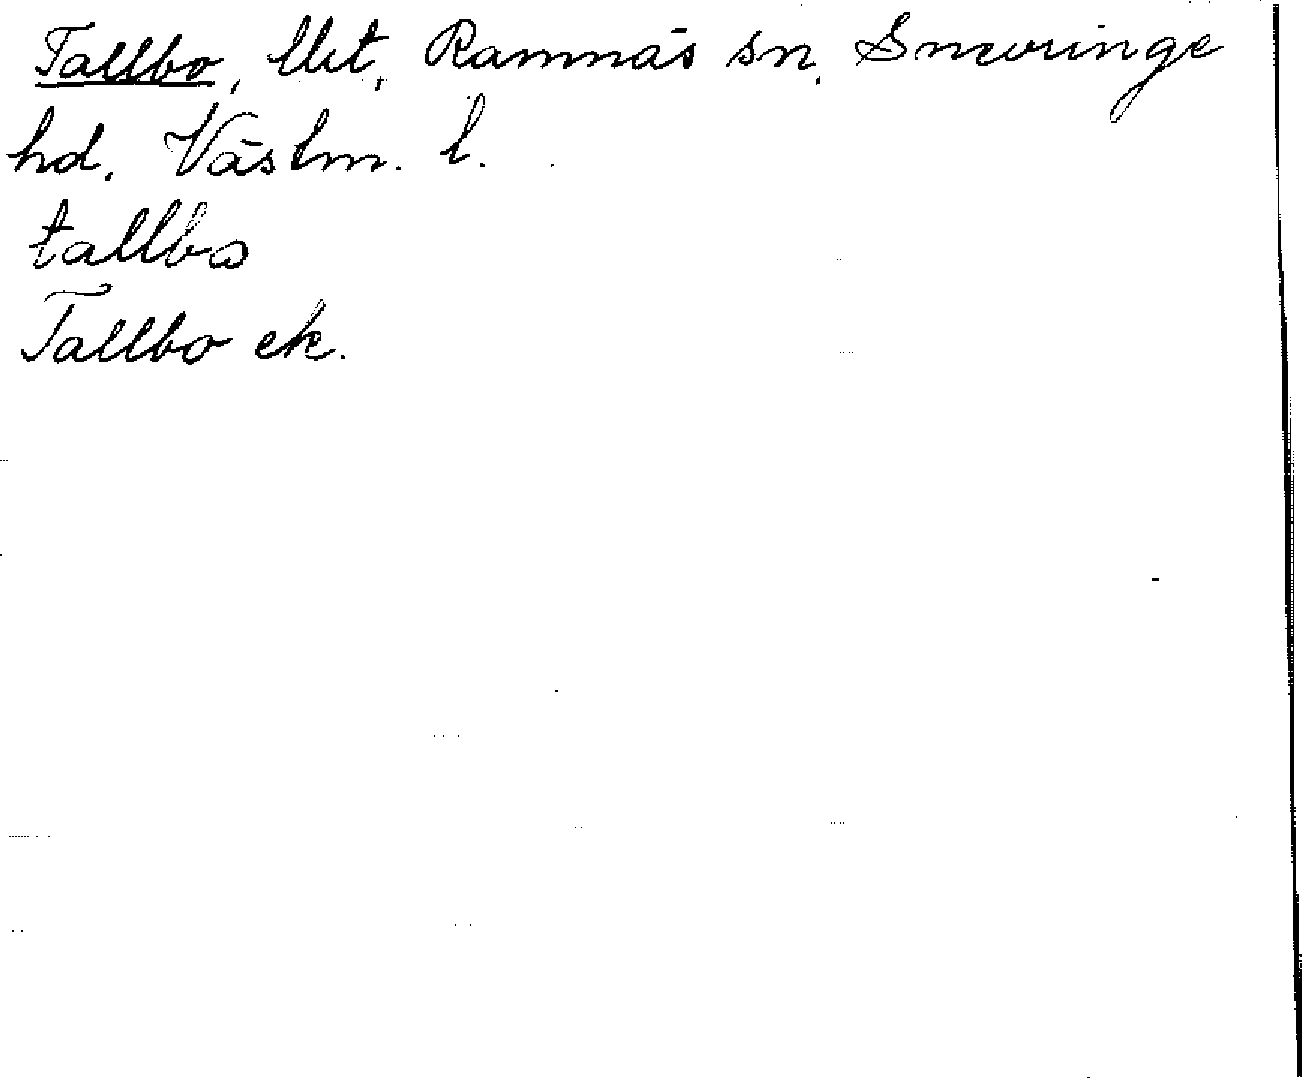 Tallbo, lht, Ramnäs sn, Snevringe
hd, Västm. l.
tallbo
Tallbo ek.